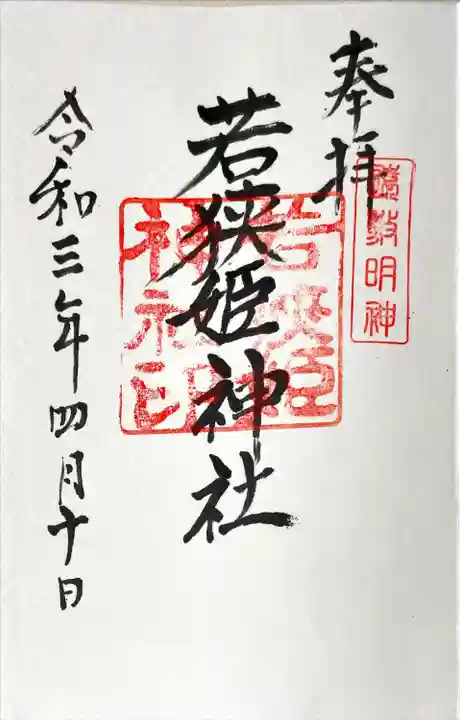 奉拝
遠敷明神
若狭姫神社
若狭姫
神社印
令和三年四月十日